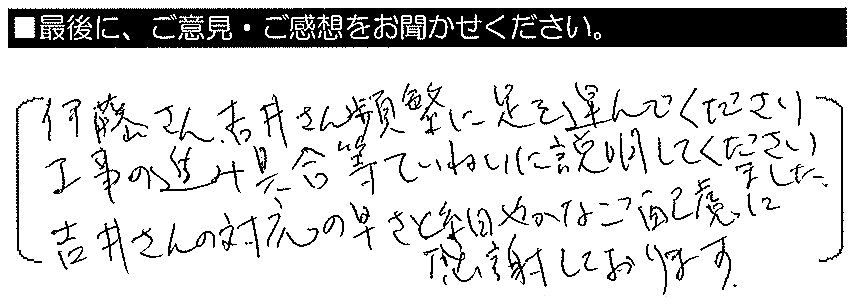 ■最後に、ご意見・ご感想をお聞かせください。
伊藤さん、吉井さん頻繁に足を運んでくださり
工事の進み具合等ていねいに説明してください
ました。
吉井さんの対応の早さと細やかなご配慮に
感謝しております。